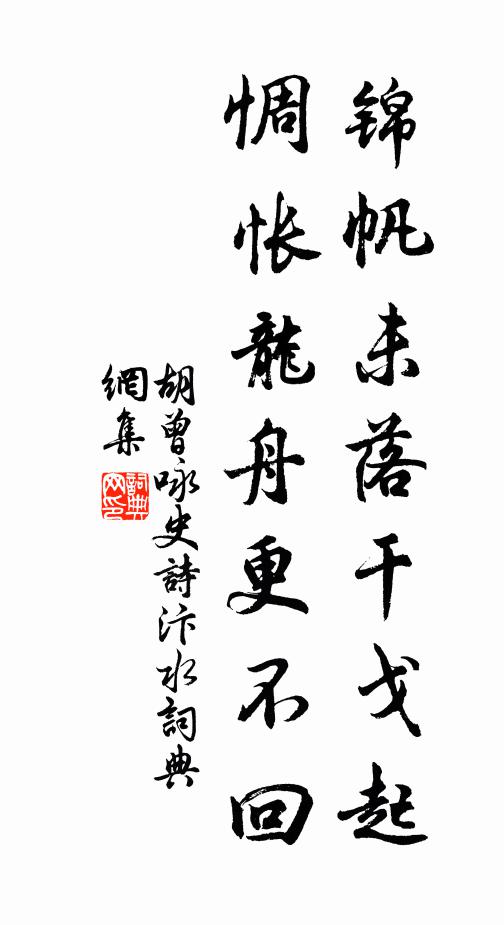 锦帆未落干戈起
惆怅龍舟更不回
胡曾咏史詩汴水詞典
網集
詞典
网印